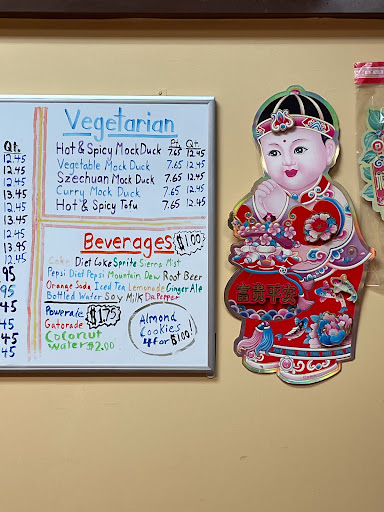 Qt.
12.45
12.45
12.45
13.45
12.45
13.45
12.45
12.45
13.45
12.45
95
95
45
45
45
45
Vegetarian
Pt. Qt.
Hot & Spicy Mock Duck 7.65 12.45
Vegetable Mock Duck 7.65 12.45
Szechuan Mock Duck 7.65 12.45
Curry Mock Duck 7.65 12.45
Hot & Spicy Tofu 7.65 12.45
Beverages $1.00
Coke Diet Coke Sprite Sierra Mist
Pepsi Diet Pepsi Mountain Dew Root Beer
Orange Soda Iced Tea Lemonade Ginger Ale
Bottled Water Soy Milk Dr. Pepper
Powerade $1.75
Gatorade
Coconut
Water $2.00
Almond
Cookies
4 for $1.00!
富貴平安